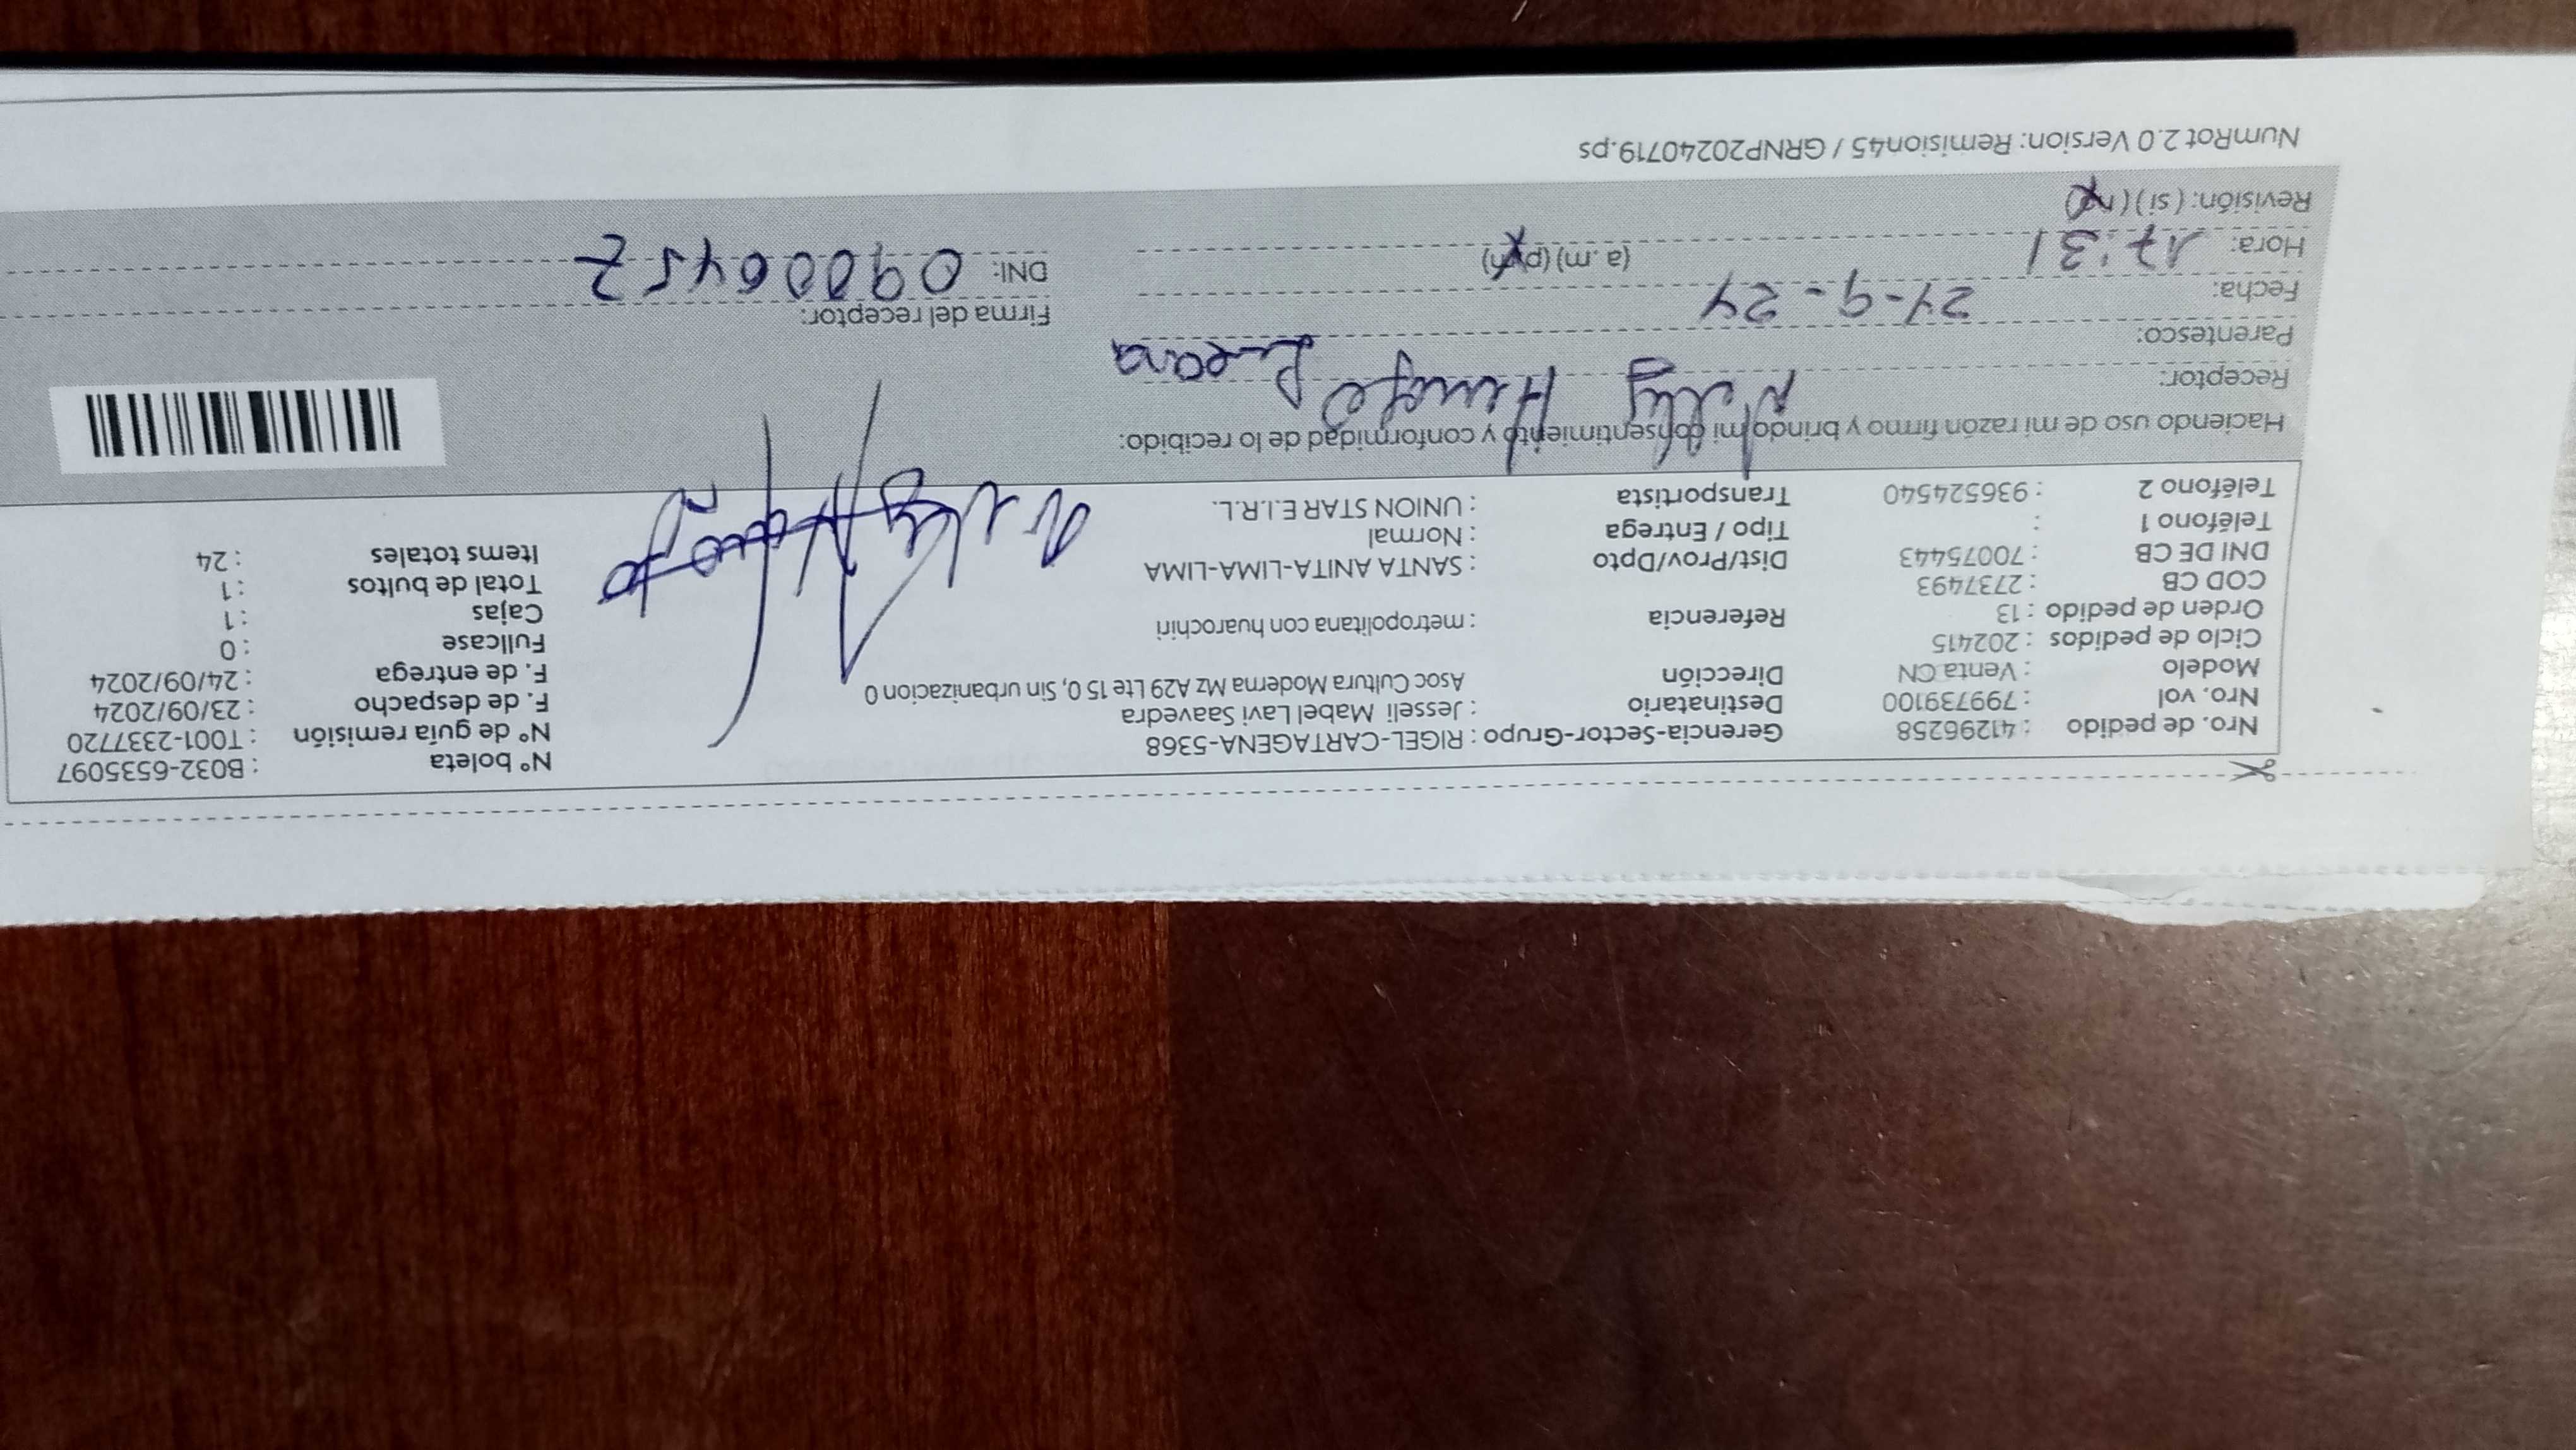 Nro. de pedido : 41296258 Gerencia-Sector-Grupo : RIGEL-CARTAGENA-5368 N° boleta : B032-6535097
Nro. vol : 799739100 Destinatario : Jesseli Mabel Lavi Saavedra N° de guía remisión : T001-2337720
Modelo : Venta CN Dirección Asoc Cultura Moderna Mz A29 Lte 15 0, Sin urbanizacion 0 F. de despacho : 23/09/2024
Ciclo de pedidos : 202415 F. de entrega : 24/09/2024
Orden de pedido : 13 Referencia : metropolitana con huarochiri Fullcase : 0
COD CB : 2737493 Cajas : 1
DNI DE CB : 70075443 Dist/Prov/Dpto : SANTA ANITA-LIMA-LIMA Total de bultos : 1
Teléfono 1 : Tipo / Entrega : Normal Items totales : 24
Teléfono 2 : 936524540 Transportista : UNION STAR E.I.R.L.
Haciendo uso de mi razón firmo y brindo mi consentimiento y conformidad de lo recibido:
Receptor: Nelly
Parentesco:
Fecha: 24-9-24 Firma del receptor:
Hora: 17:31 (a.m) (pm) DNI: 090006452
Revisión: (si) (no)
NumRot 2.0 Version: Remision45 / GRNP20240719.ps